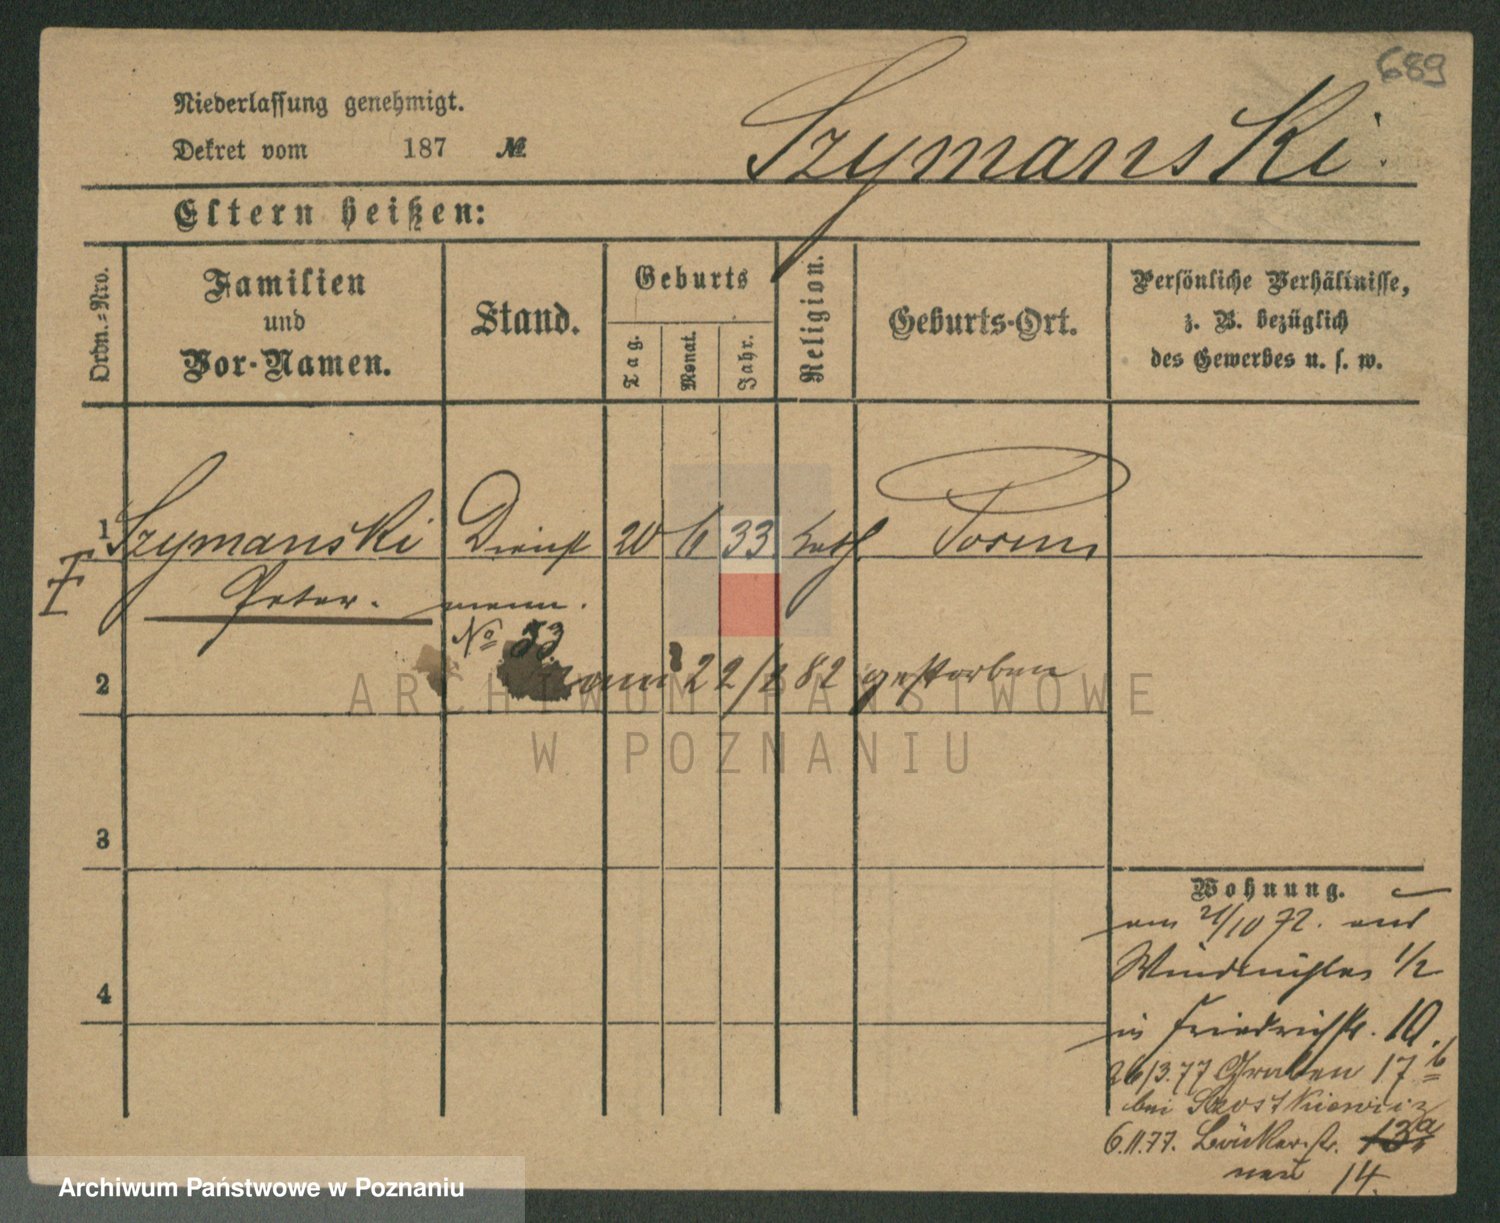 689
Niederlassung genehmigt.
Dekret vom 187 №
Szymanski.
Eltern heißen:
Ordn.=Nro.
Familien
und
Vor-Namen.
Stand.
Geburts
Tag.
Monat.
Jahr.
Religion.
Geburts-Ort.
Persönliche Verhältnisse,
z. B. bezüglich
des Gewerbes u. s. w.
1 Szymanski Dienst 20 6 33 kath. Posen
Peter. mann.
No 33
2 22/2 82 gestorben
ARCHIWUM PAŃSTWOWE
W POZNANIU
3
Wohnung.
am 21/10 72. aus
4 1/2
in Friedrichstr. 10.
26/3.77 Graben 17 b
bei Szostkiewicz
6.11.77. Bäckerstr. 13a
neu 14.
Archiwum Państwowe w Poznaniu